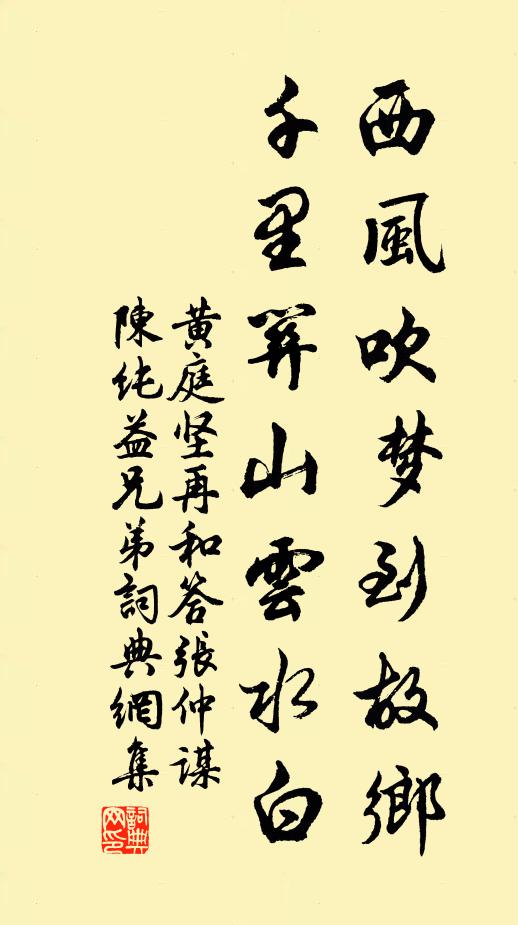 西風吹梦到故鄉
千里關山雲水白
黄庭坚再和答張仲謀
陳纯益兄弟詞典網集
詞典
网印